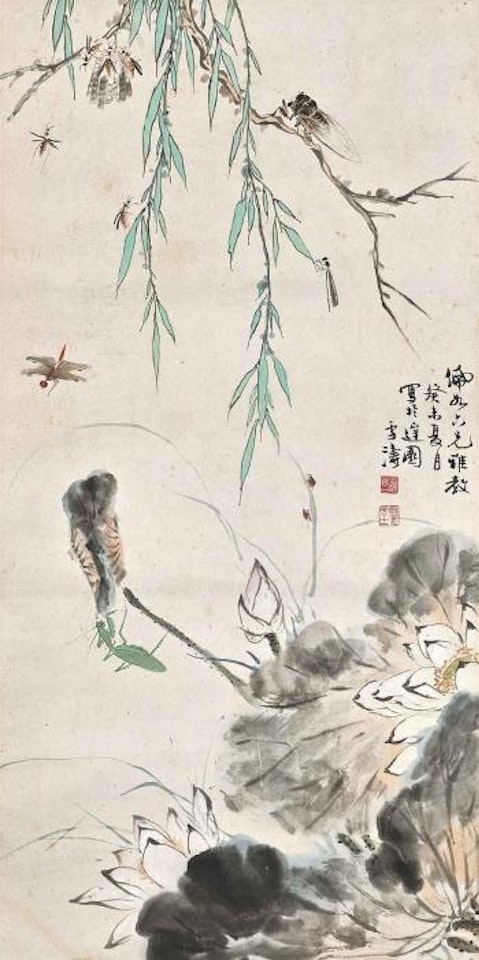 佩如六兄雅教
癸未夏月
寫於遲園
雪濤